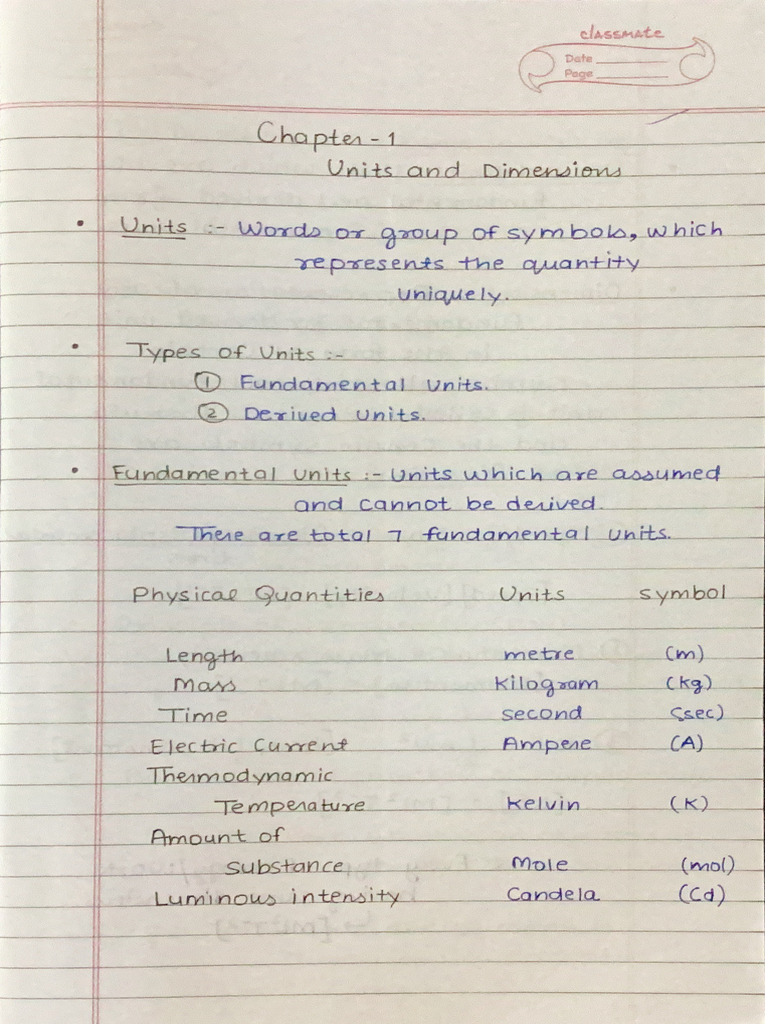 classmate
Date
Page
Chapter - 1
Units and Dimensions
• Units :- Words or group of symbols, which
represents the quantity
uniquely.
• Types of Units :-
① Fundamental Units.
② Derived Units.
• Fundamental Units :- Units which are assumed
and cannot be derived.
There are total 7 fundamental units.
Physical Quantities Units Symbol
Length metre (m)
Mass Kilogram (kg)
Time second (sec)
Electric Current Ampere (A)
Thermodynamic
Temperature Kelvin (K)
Amount of
Substance Mole (mol)
Luminous intensity Candela (Cd)